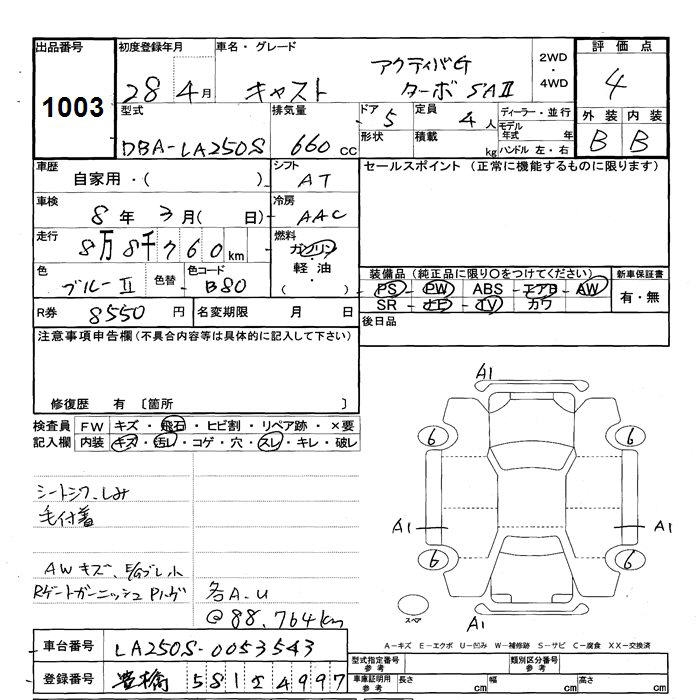 出品番号 初度登録年月 車名・グレード 2WD・4WD 評価点
1003 28 4月 キャスト アクティバG ターボ SAⅡ 4
型式 排気量 ドア 5 定員 4人 ディーラー・並行 外装 内装
DBA-LA250S 660cc 形状 積載 kg モデル年式 年 ハンドル 左・右 B B
車歴 自家用・( ) シフト AT セールスポイント (正常に機能するものに限ります)
車検 8年 3月( 日) 冷房 AAC
走行 8万8千760km 燃料 ガソリン 軽油 ( )
色 ブルーⅡ 色替 色コード B80 装備品 (純正品に限り〇をつけてください) 新車保証書
PS PW ABS エアB AW 有・無
R券 8550円 名変期限 月 日 SR ナビ TV カワ
注意事項申告欄(不具合内容等は具体的に記入して下さい) 後日品
修復歴 有 〔箇所 〕
検査員 FW キズ・飛石・ヒビ割・リペア跡・×要
記入欄 内装 キズ・汚レ・コゲ・穴・スレ・キレ・破レ
A1
6 6
シートシワ、しみ
毛付着
A1 A1
6 6
AWキズ、E/Gブレ小
Rゲートガーニッシュ
各A.U
@88.764km
スペア A1
A-キズ E-エクボ U-凹み W-補修跡 S-サビ C-腐食 XX-交換済
車台番号 LA250S-0053543
型式指定番号 参考 類別区分番号 参考
登録番号 豊橋 581 4997
車庫証明用 参考 長さ cm 幅 cm 高さ cm